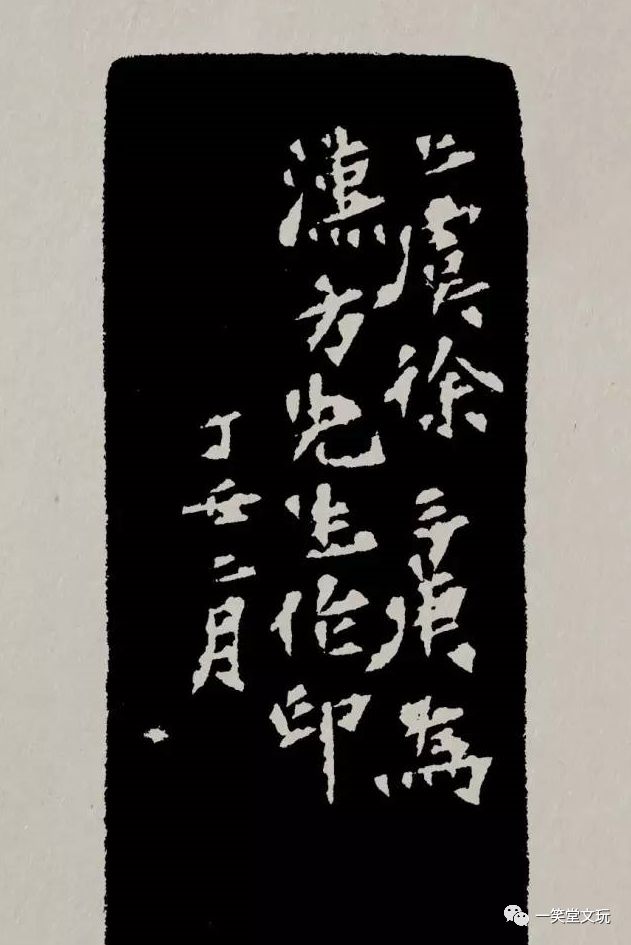 上虞徐三庚為
漢方先生作印
丁丑二月
一笑堂文玩